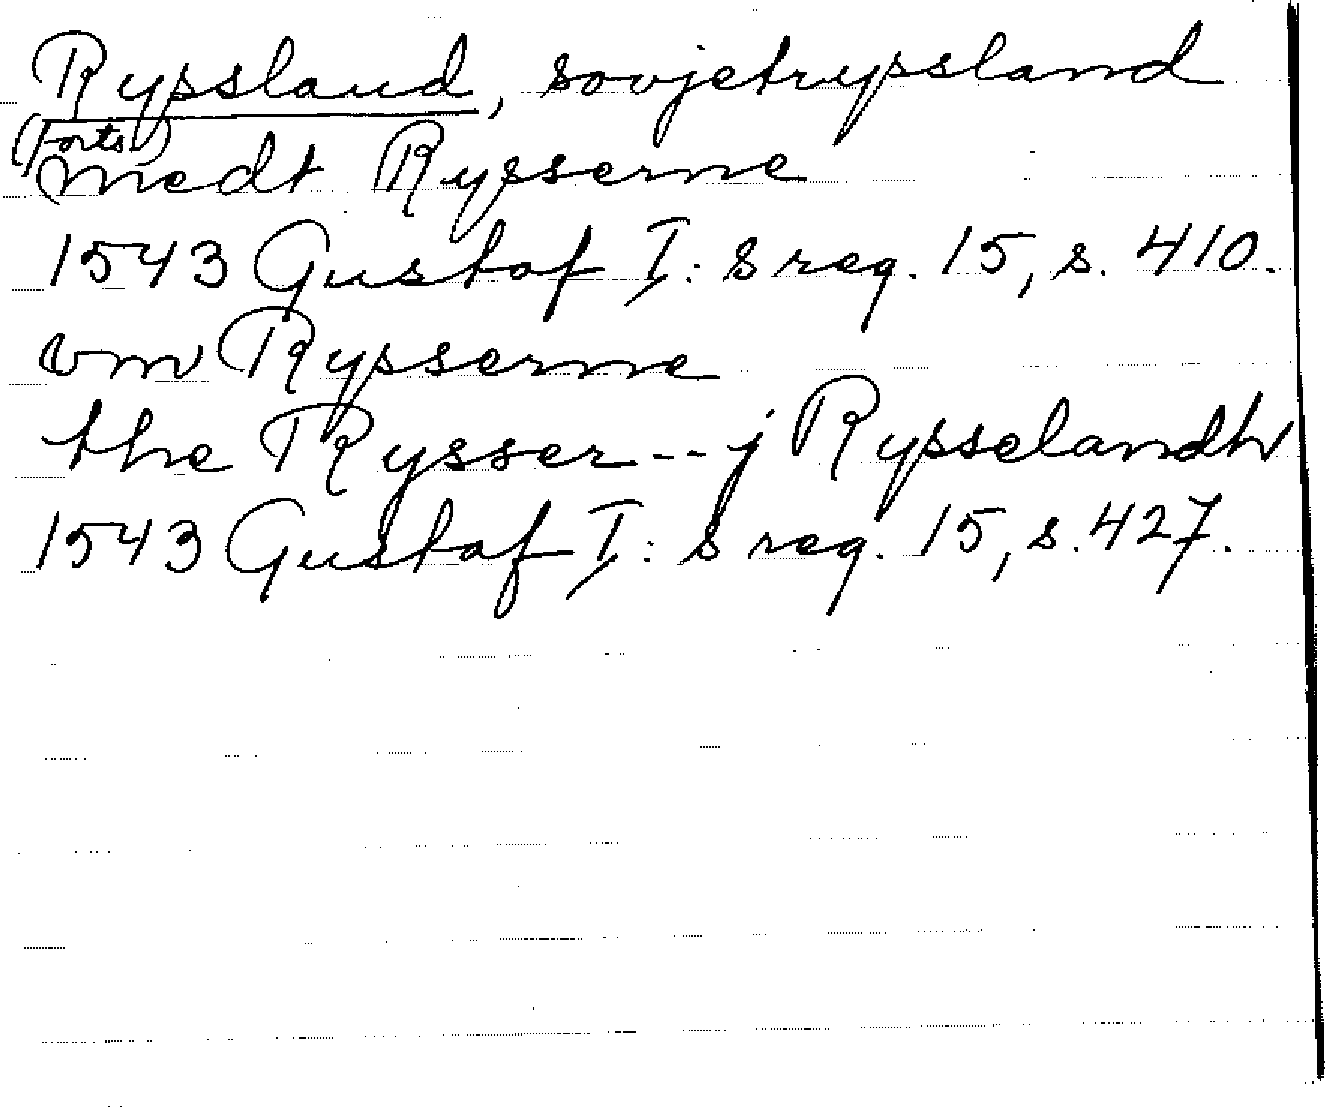 Ryssland, sovjetryssland
(Forts.)
medt Rysserne
1543 Gustaf I:s reg. 15, s. 410.
om Rysserne
the Rysser -- j Rysselandh
1543 Gustaf I:s reg. 15, s. 427.